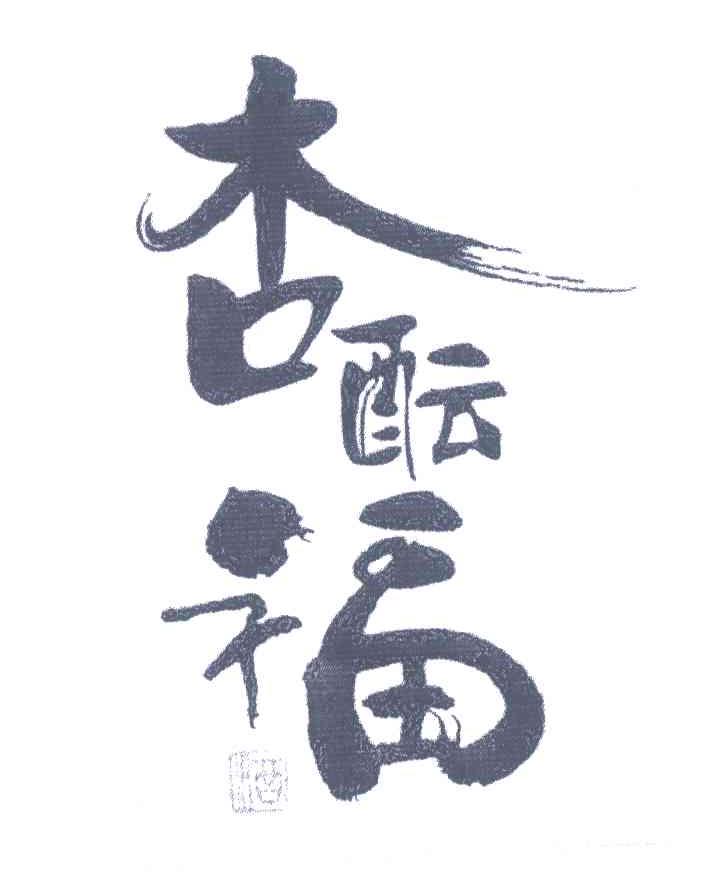 杏酝福